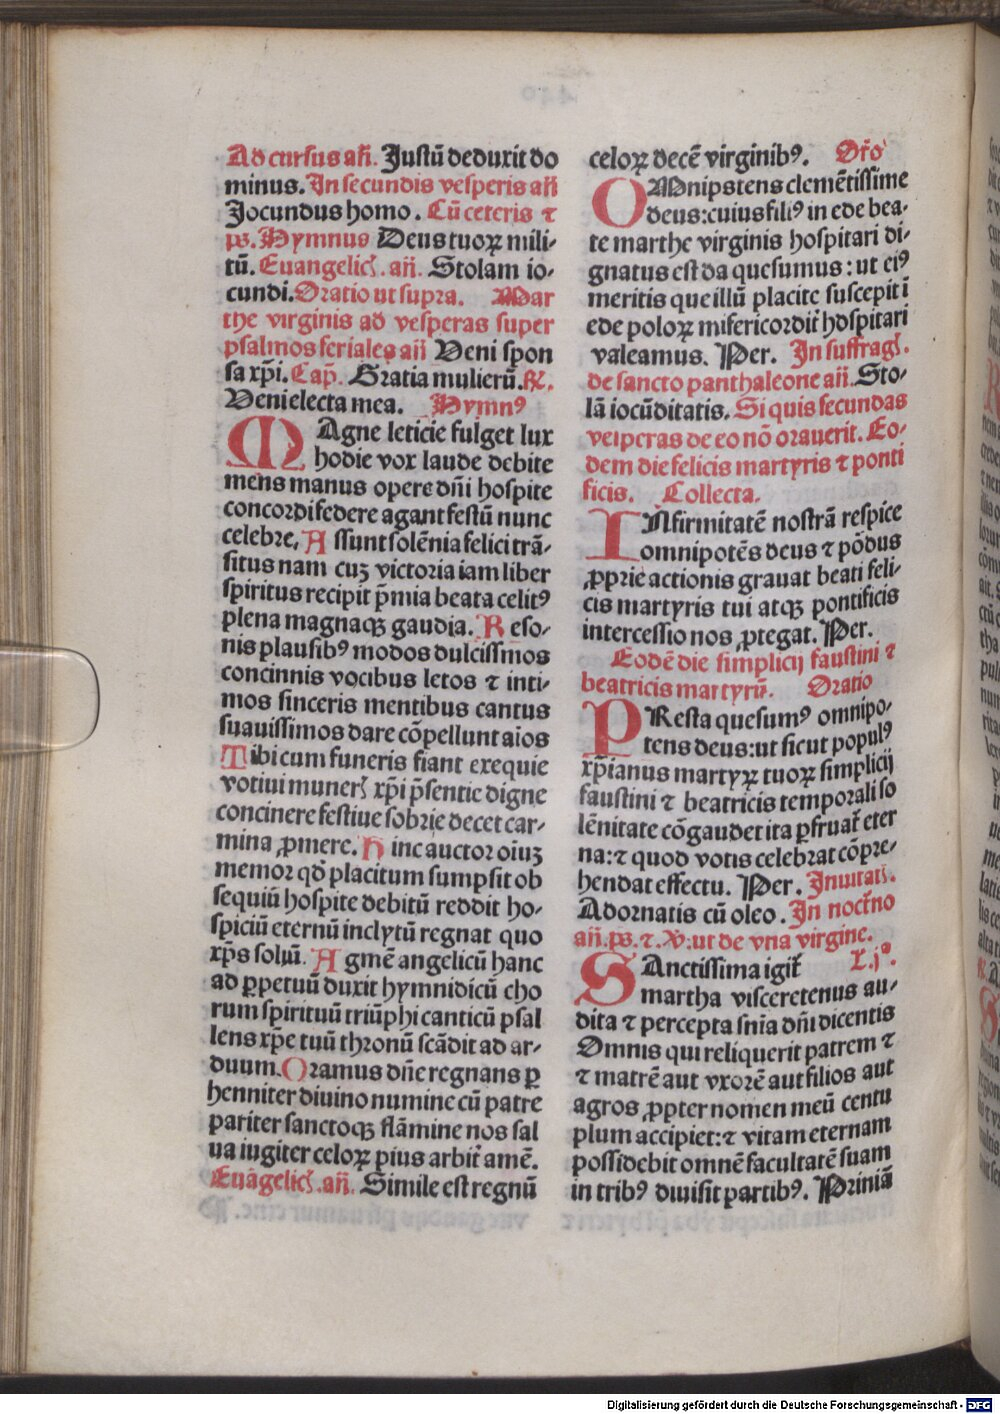 Ad cursus añ. Justū deduxit do
minus. In secundis vesperis añ
Jocundus homo. Cū ceteris ⁊
ps. Hymnus Deus tuoꝝ mili-
tū. Euangelicꝭ. añ. Stolam io-
cundi. Oratio ut supra. Mar
the virginis ad vesperas super
psalmos feriales añ Veni spon
sa xp̄i. Cap̄. Gratia mulierū. ℟.
Veni electa mea. Hymnꝰ
MAgne leticie fulget lux
hodie vox laude debite
mens manus opere dn̄i hospite
concordi federe agant festū nunc
celebre, Assunt solēnia felici trā-
situs nam cuʒ victoria iam liber
spiritus recipit p̄mia beata celitꝰ
plena magnaqꝫ gaudia. Reso-
nis plausibꝰ modos dulcissmos
concinnis vocibus letos ⁊ inti-
mos sinceris mentibus cantus
suauissimos dare cōpellunt aios
Tibi cum funeris fiant exequie
votiui munerꝭ xp̄i p̄sentie digne
concinere festiue sobrie decet car-
mina ꝓmere. Hinc auctor oīuʒ
memor qd̄ placitum sumpsit ob
sequiū hospite debitū reddit ho-
spiciū eternū inclytū regnat quo
xp̄s solū. Agmē angelicū hanc
ad ꝑpetuū duxit hymnidicū cho
rum spirituū triūphi canticū psal
lens xp̄e tuū thronū scādit ad ar-
duum. Oramus dn̄e regnans ꝑ
henniter diuino numine cū patre
pariter sanctoqꝫ flāmine nos sal
ua iugiter celoꝝ pius arbit̄ amē.
Euāgelicꝭ. añ. Simile est regnū
celoꝝ decē virginibꝰ. Or̄o
OMnipotens clemētissime
deus: cuius filiꝰ in ede bea-
te marthe virginis hospitari di-
gnatus est da quesumus: ut eiꝰ
meritis que illū placite suscepit ī
ede poloꝝ misericordit̄ hospitari
valeamus. Per. In suffragꝭ.
de sancto panthaleone añ. Sto-
lā iocūditatis. Si quis secundas
vesperas de eo nō orauerit. Eo-
dem die felicis martyris ⁊ ponti
ficis. Collecta.
INfirmitatē nostrā respice
omnipotēs deus ⁊ pōdus
ꝓprie actionis grauat beati feli-
cis martyris tui atqꝫ pontificis
intercessio nos ꝓtegat. Per.
Eodē die simplicij faustini ⁊
beatricis martyrū. Oratio
PResta quesumꝰ omnipo-
tens deus: ut sicut populꝰ
xp̄ianus martyꝝ tuoꝝ simplicij
faustini ⁊ beatricis temporali so
lēnitate cōgaudet ita ꝑfruat̄ eter
na: ⁊ quod votis celebrat cōpre-
hendat effectu. Per. Inuitatꝭ.
Adornatis cū oleo. In noct̄no
añ. ps. ⁊. ℣: ut de vna virgine.
SAnctissima igit̄ L. jª.
martha viscere tenus au-
dita ⁊ percepta sn̄ia dn̄i dicentis
Omnis qui reliquerit patrem ⁊
⁊ matrē aut vxorē aut filios aut
agros ꝓpter nomen meū centu
plum accipiet: ⁊ vitam eternam
possidebit omnē facultatē suam
in tribꝰ diuisit partibꝰ. Primā
Digitalisierung gefördert durch die Deutsche Forschungsgemeinschaft - DFG